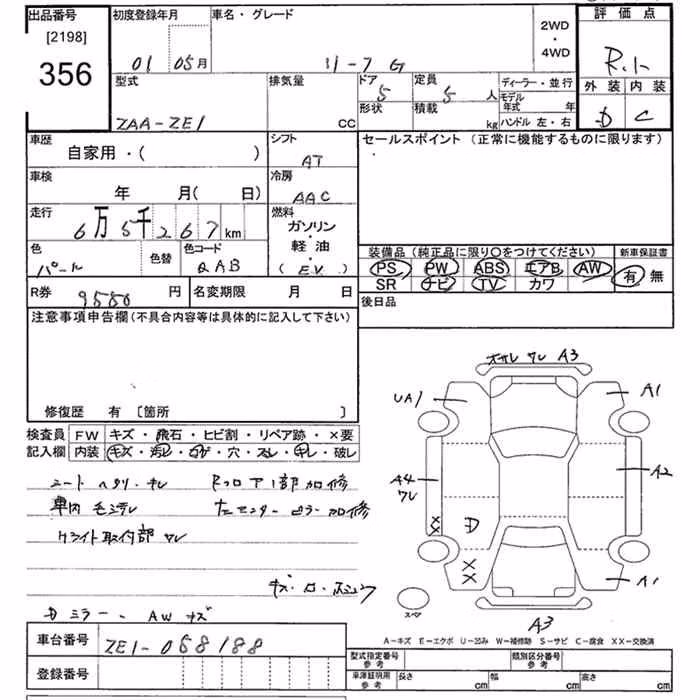 出品番号
[2198]
356
初度登録年月
01 05月
車名・グレード
リーフ G
2WD
・
4WD
評価点
R.1
外装 内装
D C
型式
ZAA-ZE1
排気量
CC
ドア
5
定員
5 人
形状
積載
kg
ディーラー・並行
モデル年式 年
ハンドル 左・右
車歴
自家用・( )
シフト
AT
セールスポイント (正常に機能するものに限ります)
車検
年 月( 日)
冷房
AAC
走行
6万5千267km
燃料
ガソリン
・
軽・油
(EV)
色
パール
色替
色コード
QAB
装備品(純正品に限り○をつけてください)
新車保証書
PS PW ABS エアB AW
有 無
SR ナビ TV カワ
R券
9550 円
名変期限 月 日
後日品
注意事項申告欄(不具合内容等は具体的に記入して下さい)
修復歴 有 [箇所 ]
検査員記入欄
FW キズ・飛石・ヒビ割・リペア跡・×要
内装 キズ・汚レ・コゲ・穴・スレ・キレ・破レ
シートヘタリ・キレ Rフロア1部加修
車内毛ミダレ 左センターピラー加修
ライト取付部ワレ
キズ・ロ・
Dミラー、AWキズ
ワレ A3
UA1
A1
A4
ワレ
A2
D
XX
XX
A1
スペア
A3
A-キズ E-エクボ U-凹み W-補修跡 S-サビ C-腐食 XX-交換済
車台番号
ZE1-058188
登録番号
型式指定番号
参考
類別区分番号
参考
車庫証明用
参考
長さ cm
幅 cm
高さ cm